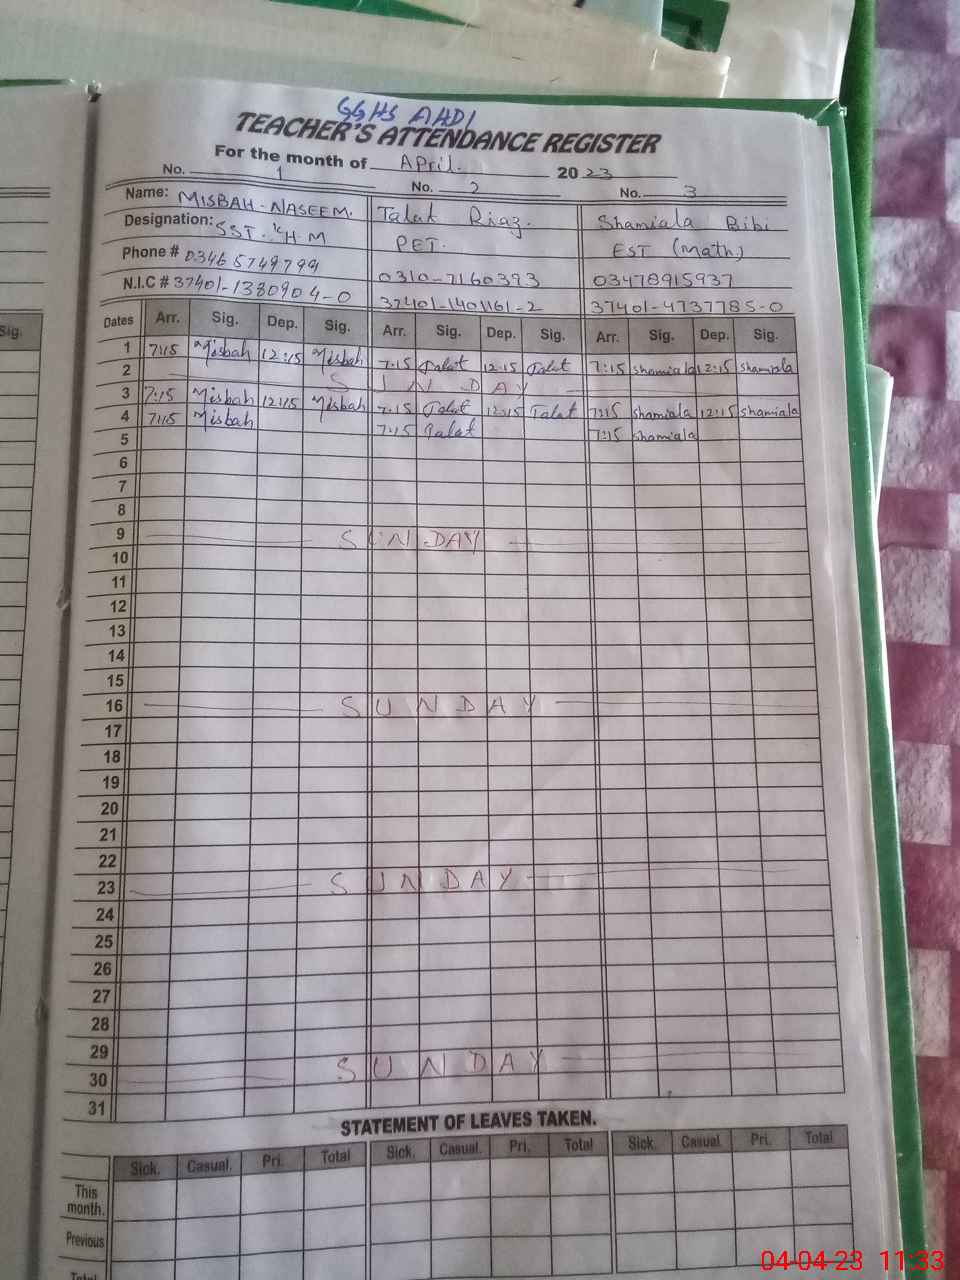 GGHS AHDI
TEACHER'S ATTENDANCE REGISTER
For the month of April. 2023
No. 1 No. 2 No. 3
Name: MISBAH-NASEEM. Talat Riaz. Shamiala Bibi
Designation: SST. H.M PET. EST (Math.)
Phone # 03465749799 0310-7160393 03478915937
N.I.C # 37401-1380904-0 37401-1401161-2 37401-4737785-0
Sig.
Dates Arr. Sig. Dep. Sig. Arr. Sig. Dep. Sig. Arr. Sig. Dep. Sig.
1 7:15 Misbah 12:15 Misbah 7:15 Talat 12:15 Talat 7:15 shamiala 12:15 shamiala
2 SUNDAY
3 7:15 Misbah 12:15 Misbah 7:15 Talat 12:15 Talat 7:15 shamiala 12:15 shamiala
4 7:15 Misbah 7:15 Talat 7:15 shamiala
5
6
7
8
9 SUNDAY
10
11
12
13
14
15
16 SUNDAY
17
18
19
20
21
22
23 SUNDAY
24
25
26
27
28
29
30 SUNDAY
31
STATEMENT OF LEAVES TAKEN.
Sick. Casual. Pri. Total Sick. Casual. Pri. Total Sick. Casual. Pri. Total
This
month.
Previous
Total
04-04-23 11:33